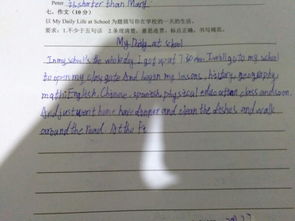 Peter is shorter than Mary.
七、作文(10分)
以 My Daily Life at School 为题描写你在学校的一天的生活。
要求:1.不少于五句话 2.条理清楚,意思连贯,标点正确,书写规范。
My Daily at school
In my school's the whole day. I get up at 7:30 am. I will go to my school
to open my class gate And began my lessons, history, geography
math English. Chinese, spanish, physical education class and soon.
And just went home have danner and clean the dishes and walk
around the road. At the